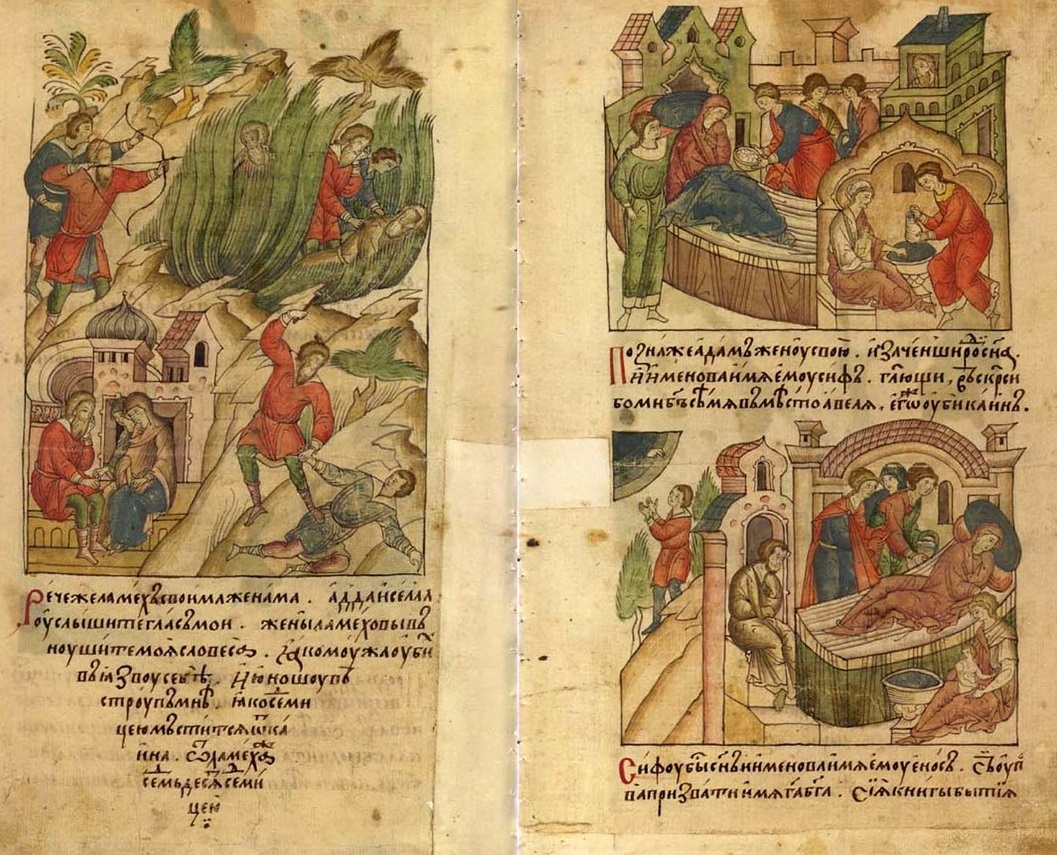 Речежеламехъсвоимаженама . аддаиселла
оуслышитегласъмои . женыламеховывъ
ноушитемоясловеса . Ꙗкомоужаоуби
въꙗзвоусебѣ . Июношоувъ
строупъмнѣ . ꙗкоседми
цеюмъститсяѿка
ина . Ѿламеха
семьдесяседми
цею
Познажеадамъженоусвою . изаченширодисна .
Иименоваимяемоусифъ . глющи , въскреси
бомибъсѣмявъмѣстоавеля . егожеоубикаинъ .
Сифоубыснъиименоваимяемоуеносъ . Сьоупо
вапризватиимягабга . Сиякнигыбытия